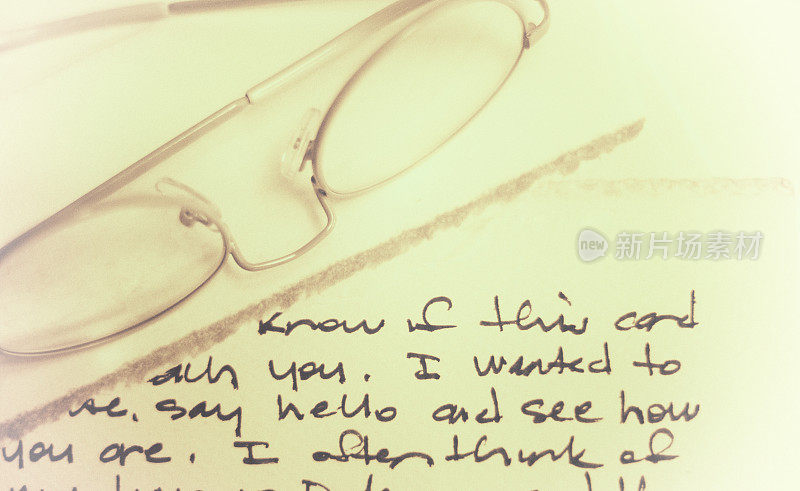 new 新片场素材
know if this card
ach you. I wanted to
se, say hello and see how
you are. I often think of